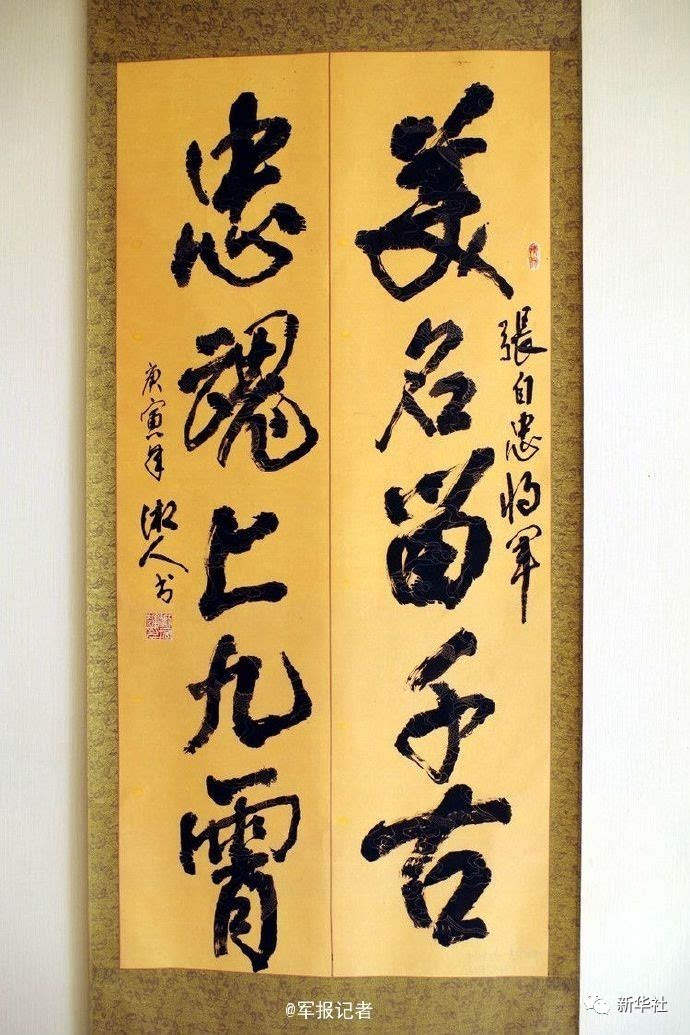 張自忠将軍
美名留千古
忠魂上九霄
庚寅年 湘人书
@军报记者
新华社